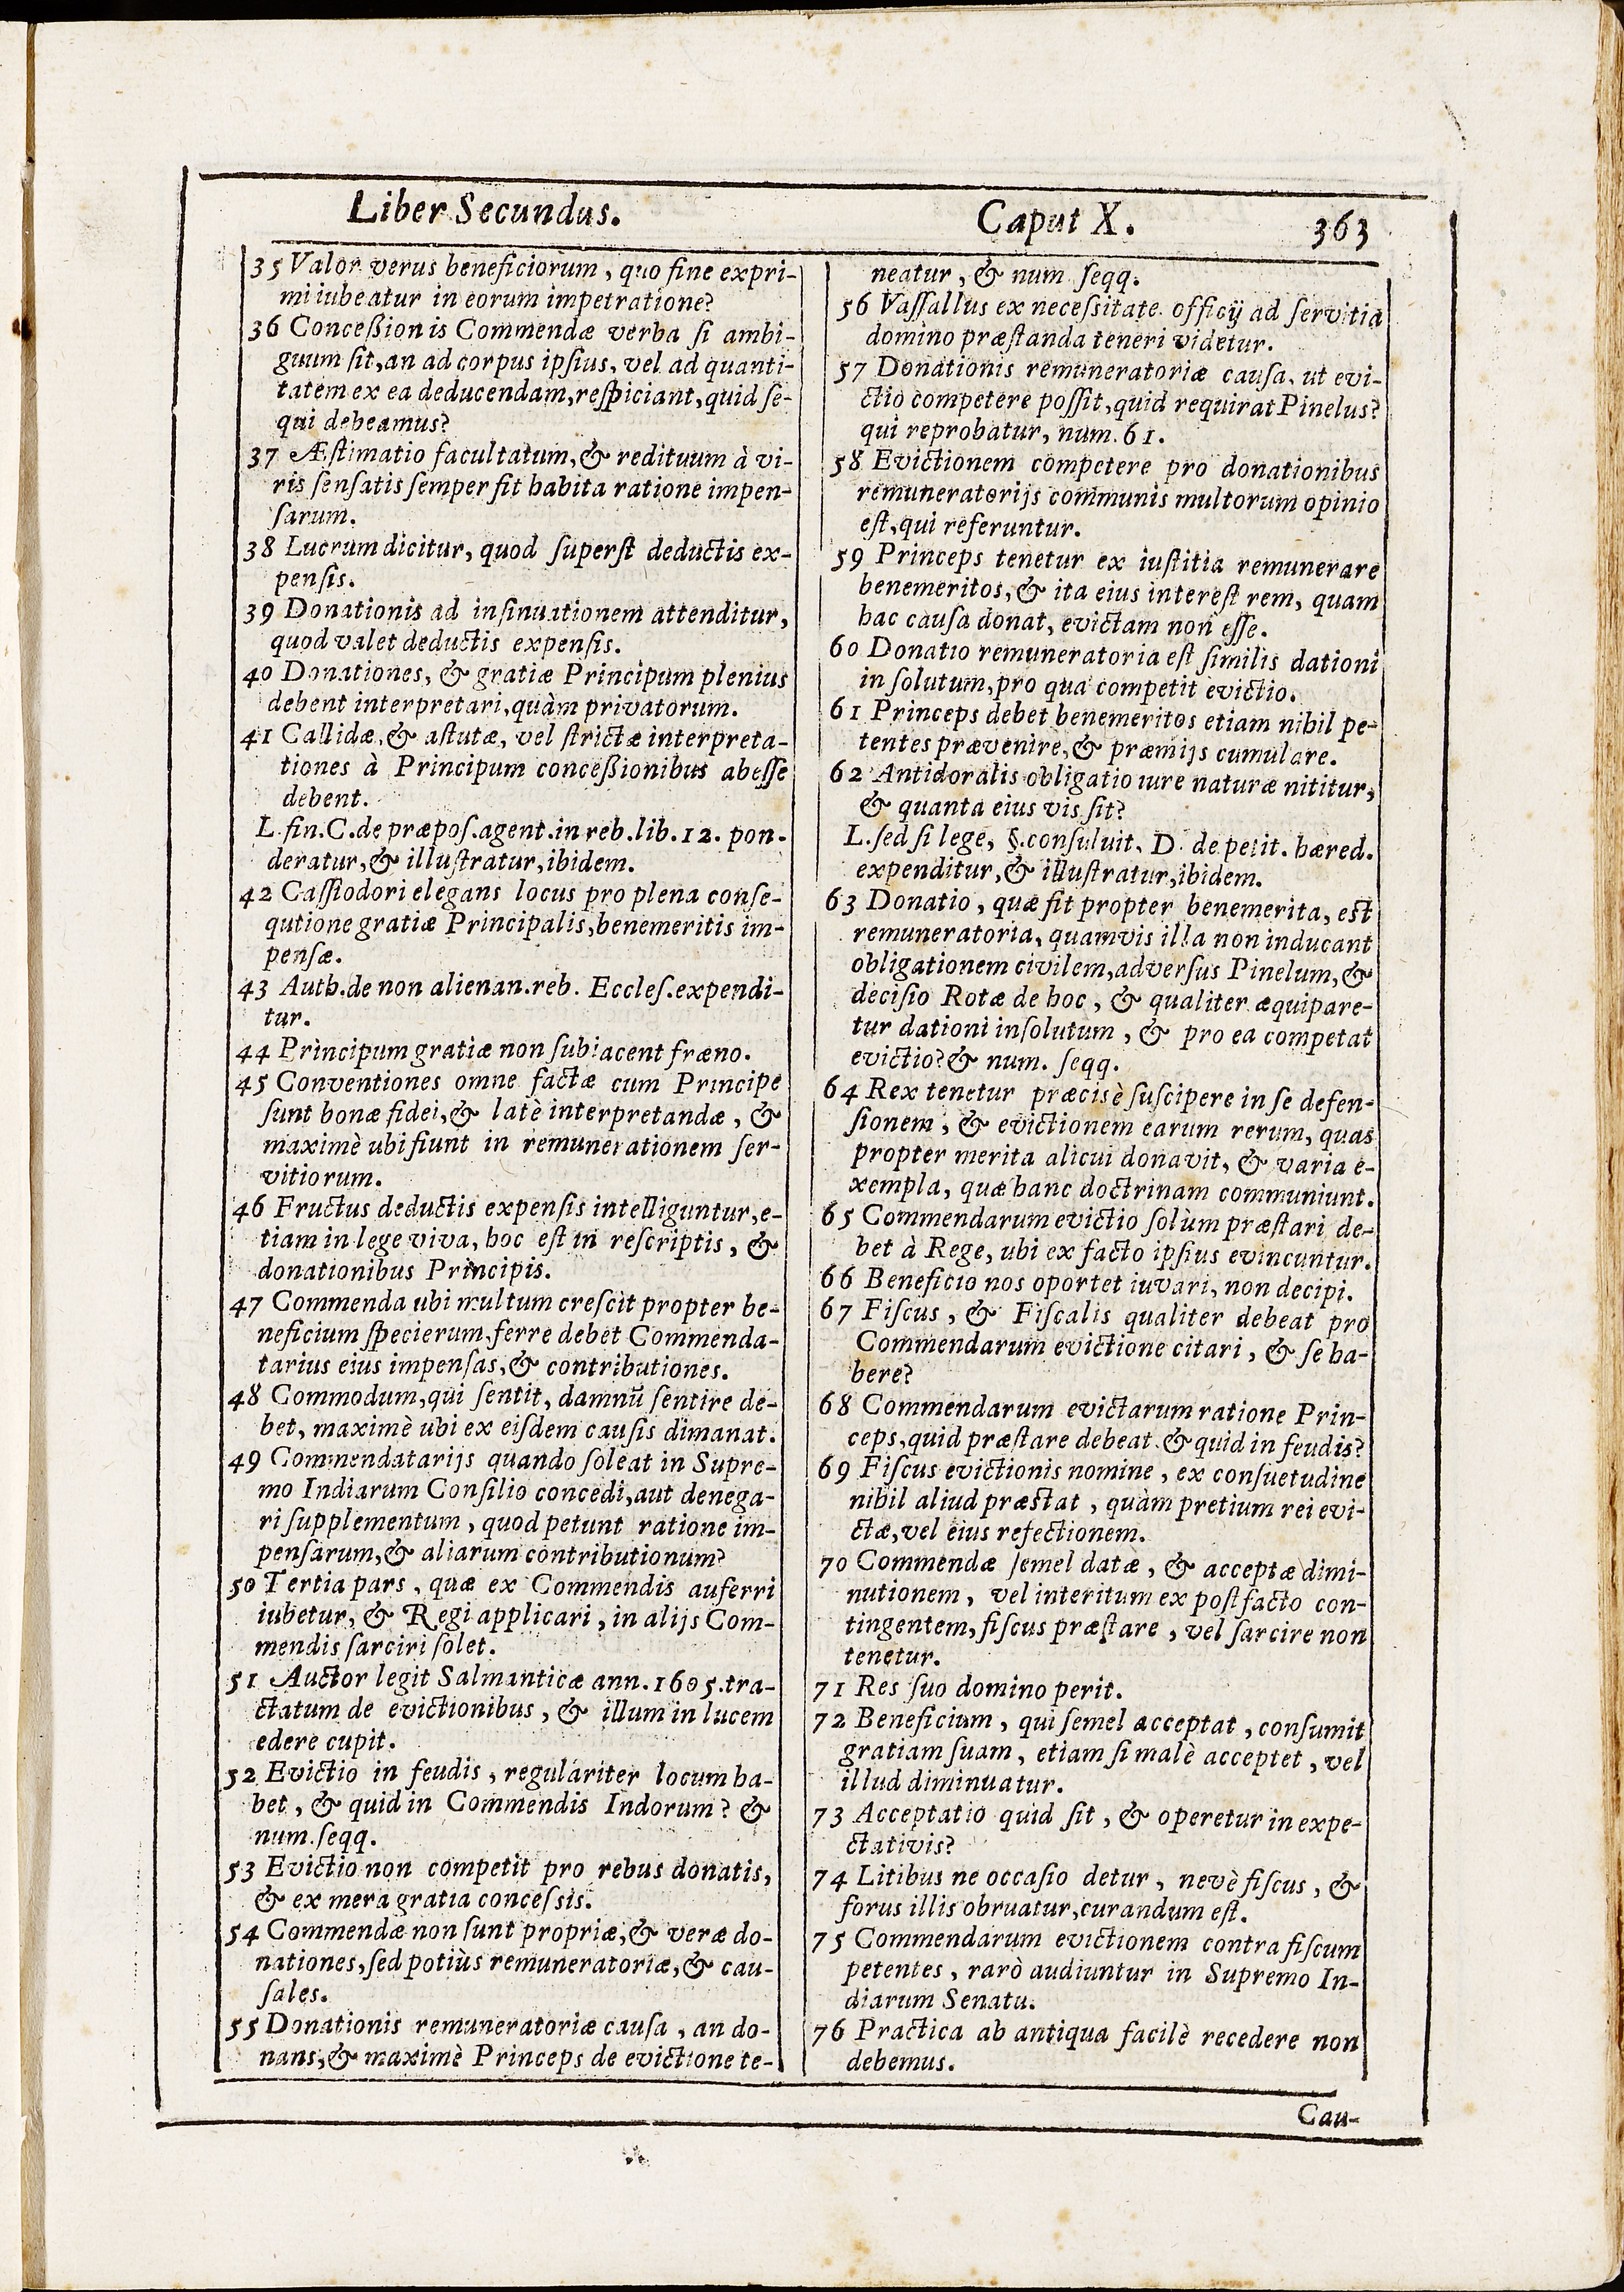 Liber Secundus. Caput X. 363
35 Valor verus beneficiorum, quo fine expri-
mi iubeatur in eorum impetratione?
36 Conceßionis Commendæ verba ſi ambi-
guum ſit, an ad corpus ipſius, vel ad quanti-
tatem ex ea deducendam, reſpiciant, quid ſe-
qui debeamus?
37 Æſtimatio facultatum, & redituum à vi-
ris ſenſatis ſemper fit habita ratione impen-
ſarum.
38 Lucrum dicitur, quod ſuperſt deductis ex-
penſis.
39 Donationis ad inſinuationem attenditur,
quod valet deductis expenſis.
40 Donationes, & gratiæ Principum plenius
debent interpretari, quàm privatorum.
41 Callidæ, & aſtutæ, vel ſtrictæ interpreta-
tiones à Principum conceßionibus abeſſe
debent.
L. fin. C. de præpoſ. agent. in reb. lib. 12. pon-
deratur, & illuſtratur, ibidem.
42 Caſſiodori elegans locus pro plena conſe-
qutione gratiæ Principalis, benemeritis im-
penſæ.
43 Auth. de non alienan. reb. Eccleſ. expendi-
tur.
44 Principum gratiæ non ſubiacent fræno.
45 Conventiones omne factæ cum Principe
ſunt bonæ fidei, & latè interpretandæ, &
maximè ubi fiunt in remunerationem ſer-
vitiorum.
46 Fructus deductis expenſis intelliguntur, e-
tiam in lege viva, hoc eſt in reſcriptis, &
donationibus Principis.
47 Commenda ubi multum creſcit propter be-
neficium ſpecierum, ferre debet Commenda-
tarius eius impenſas, & contributiones.
48 Commodum, qui ſentit, damnũ ſentire de-
bet, maximè ubi ex eiſdem cauſis dimanat.
49 Commendatarijs quando ſoleat in Supre-
mo Indiarum Conſilio concedi, aut denega-
ri ſupplementum, quod petunt ratione im-
penſarum, & aliarum contributionum?
50 Tertia pars, quæ ex Commendis auferri
iubetur, & Regi applicari, in alijs Com-
mendis ſarciri ſolet.
51 Auctor legit Salmanticæ ann. 1605. tra-
ctatum de evictionibus, & illum in lucem
edere cupit.
52 Evictio in feudis, regulariter locum ha-
bet, & quid in Commendis Indorum? &
num. ſeqq.
53 Evictio non competit pro rebus donatis,
& ex mera gratia conceſsis.
54 Commendæ non ſunt propriæ, & veræ do-
nationes, ſed potiùs remuneratoriæ, & cau-
ſales.
55 Donationis remuneratoriæ cauſa, an do-
nans, & maximè Princeps de evictione te-
neatur, & num ſeqq.
56 Vaſſallus ex neceſsitate officij ad ſervitia
domino præſtanda teneri videtur.
57 Donationis remuneratoriæ cauſa, ut evi-
ctio competere poſſit, quid requirat Pinelus?
qui reprobatur, num. 61.
58 Evictionem competere pro donationibus
remuneratorijs communis multorum opinio
eſt, qui referuntur.
59 Princeps tenetur ex iuſtitia remunerare
benemeritos, & ita eius intereſt rem, quam
hac cauſa donat, evictam non eſſe.
60 Donatio remuneratoria eſt ſimilis dationi
in ſolutum, pro qua competit evictio.
61 Princeps debet benemeritos etiam nihil pe-
tentes prævenire, & præmijs cumulare.
62 Antidoralis obligatio iure naturæ nititur,
& quanta eius vis ſit?
L. ſed ſi lege, §. conſuluit. D. de petit. hæred.
expenditur, & illuſtratur, ibidem.
63 Donatio, quæ fit propter benemerita, est
remuneratoria, quamvis illa non inducant
obligationem civilem, adverſus Pinelum, &
deciſio Rotæ de hoc, & qualiter æquipare-
tur dationi inſolutum, & pro ea competat
evictio? & num. ſeqq.
64 Rex tenetur præcisè ſuſcipere in ſe defen-
ſionem, & evictionem earum rerum, quas
propter merita alicui donavit, & varia e-
xempla, quæ hanc doctrinam communiunt.
65 Commendarum evictio ſolùm præſtari de-
bet à Rege, ubi ex facto ipſius evincuntur.
66 Beneficio nos oportet iuvari, non decipi.
67 Fiſcus, & Fiſcalis qualiter debeat pro
Commendarum evictione citari, & ſe ha-
bere?
68 Commendarum evictarum ratione Prin-
ceps, quid præſtare debeat. & quid in feudis?
69 Fiſcus evictionis nomine, ex conſuetudine
nihil aliud præstat, quàm pretium rei evi-
ctæ, vel eius refectionem.
70 Commendæ ſemel datæ, & acceptæ dimi-
nutionem, vel interitum ex poſt facto con-
tingentem, fiſcus præſtare, vel ſarcire non
tenetur.
71 Res ſuo domino perit.
72 Beneficium, qui ſemel acceptat, conſumit
gratiam ſuam, etiam ſi malè acceptet, vel
illud diminuatur.
73 Acceptatio quid ſit, & operetur in expe-
ctativis?
74 Litibus ne occaſio detur, nevè fiſcus, &
forus illis obruatur, curandum eſt.
75 Commendarum evictionem contra fiſcum
petentes, rarò audiuntur in Supremo In-
diarum Senatu.
76 Practica ab antiqua facilè recedere non
debemus.
Cau-